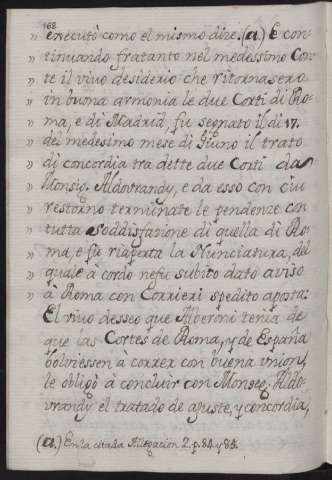 168
„ executò como el mismo dize. (a.) E con-
„ tinuando fratanto nel medessimo Con-
„ te il vivo desiderio che ritornasero
„ in buona armonia le due Corti di Ro-
„ ma, e di Madrid, fu segnato il di 17.
„ del medesimo mese di Giuno il trato
„ di concordia tra dette due Corti da
„ Monsig. Aldovrandy, e da esso con ciu
„ restorno terminate le pendenze con
„ tutta soddisfazione di quella di Ro-
„ ma, e fu riaperta la Nunciatura, del
„ quale à cordo ne fu subito dato aviso
„ à Roma con Corrieri spedito aposta:
El vivo desseo que Alberoni tenia de
que las Cortes de Roma, y de España
bolviessen à correr con buena union,
le obligò à concluir con Monseg. Aldo-
vrandy el tratado de ajuste, y concordia,
(a.) En la citada Allegacion 2. p. 84. y 85.